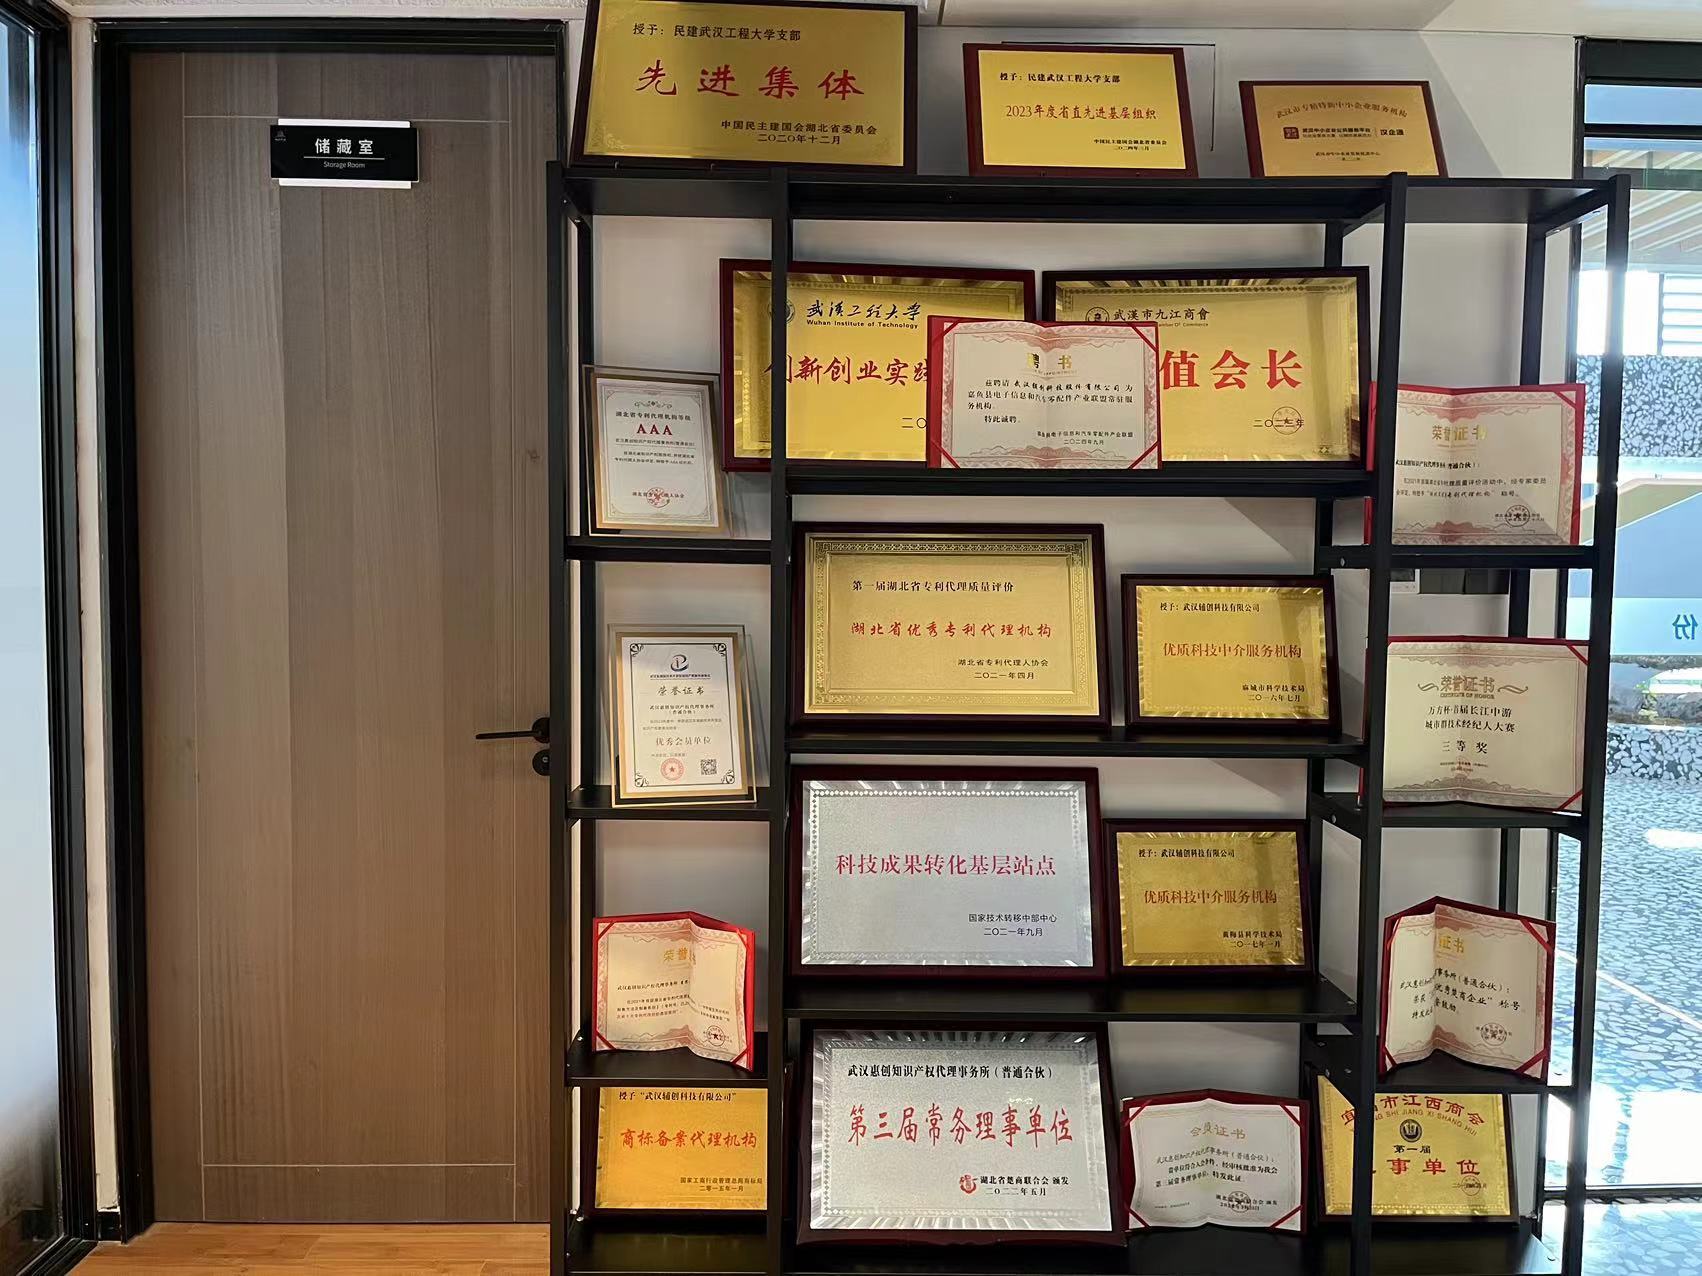 储藏室
Storage Room
授予：民建武汉工程大学支部
先进集体
中国民主建国会湖北省委员会
二〇二〇年十二月
授予：民建武汉工程大学支部
2023年度省直先进基层组织
中国民主建国会湖北省委员会
二〇二四年三月
武汉市专精特新中小企业服务机构
武汉中小企业公共服务平台
汉企通
武漢工程大学
Wuhan Institute of Technology
创新创业实践
二〇
武漢市九江商會
值会长
二〇二二年
聘书
兹聘请 武汉辅创科技股份有限公司 为
嘉鱼县电子信息和汽车零配件产业联盟常驻服
务机构。
特此诚聘。
嘉鱼县电子信息和汽车零配件产业联盟
二〇二四年九月
湖北省专利代理机构等级
AAA
荣誉证书
武汉惠创知识产权代理事务所（普通合伙）：
第一届湖北省专利代理质量评价
湖北省优秀专利代理机构
湖北省专利代理人协会
二〇二一年四月
授予：武汉辅创科技有限公司
优质科技中介服务机构
麻城市科学技术局
二〇一六年七月
荣誉证书
武汉惠创知识产权代理事务所
（普通合伙）
优秀会员单位
荣誉证书
CERTIFICATE OF HONOR
万方杯·首届长江中游
城市群技术经纪人大赛
三等奖
科技成果转化基层站点
国家技术转移中部中心
二〇二一年九月
授予：武汉辅创科技有限公司
优质科技中介服务机构
黄梅县科学技术局
二〇一七年一月
荣誉
武汉惠创知识产权代理事务所
证书
事务所（普通合伙）：
优秀楚商企业”称号
授予“武汉辅创科技有限公司”
商标备案代理机构
国家工商行政管理总局商标局
二零一五年一月
武汉惠创知识产权代理事务所（普通合伙）
第三届常务理事单位
湖北省楚商联合会 颁发
二〇二二年五月
会员证书
武汉惠创知识产权代理事务所（普通合伙）：
贵单位符合入会条件，经审核批准为我会
第三届常务理事单位，特发此证。
湖北省楚商联合会 颁发
市江西商会
SHI JIANG XI SHANG HUI
第一届
事单位
份